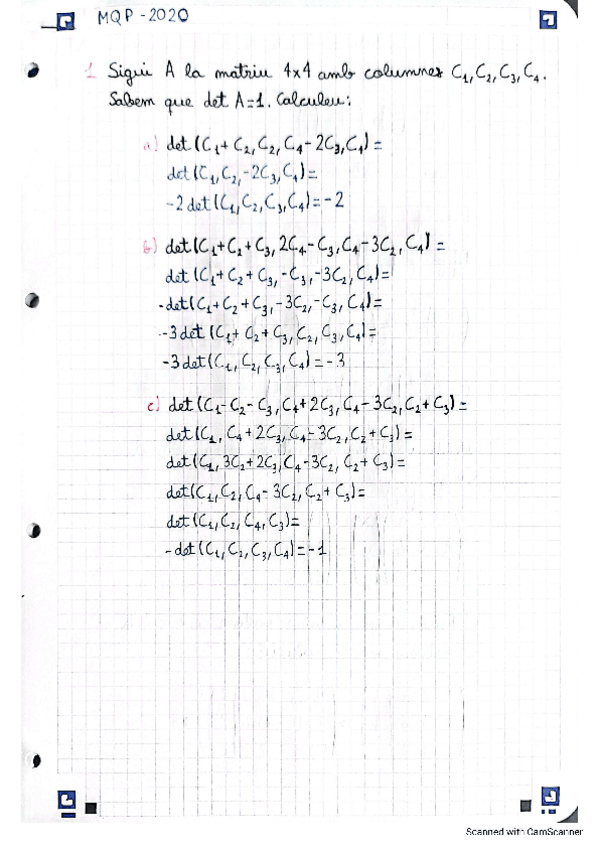 MQP - 2020
1 Sigui A la matriu 4x4 amb columnes C₁, C₂, C₃, C₄.
Sabem que det A=1. Calculeu:
a) det (C₁+C₂, C₂, C₄-2C₃, C₄)=
det (C₁, C₂, -2C₃, C₄)=
-2 det (C₁, C₂, C₃, C₄)=-2
b) det (C₁+C₂+C₃, 2C₄-C₃, C₄-3C₂, C₄)=
det (C₁+C₂+C₃, -C₃, -3C₂, C₄)=
-det (C₁+C₂+C₃, -3C₂, -C₃, C₄)=
-3 det (C₁+C₂+C₃, C₂, C₃, C₄)=
-3 det (C₁, C₂, C₃, C₄)=-3
c) det (C₁-C₂-C₃, C₄+2C₃, C₄-3C₂, C₂+C₃)=
det (C₁, C₄+2C₃, C₄-3C₂, C₂+C₃)=
det (C₁, 3C₂+2C₃, C₄-3C₂, C₂+C₃)=
det (C₁, C₂, C₄-3C₂, C₂+C₃)=
det (C₁, C₂, C₄, C₃)=
-det (C₁, C₂, C₃, C₄)=-1
Scanned with CamScanner